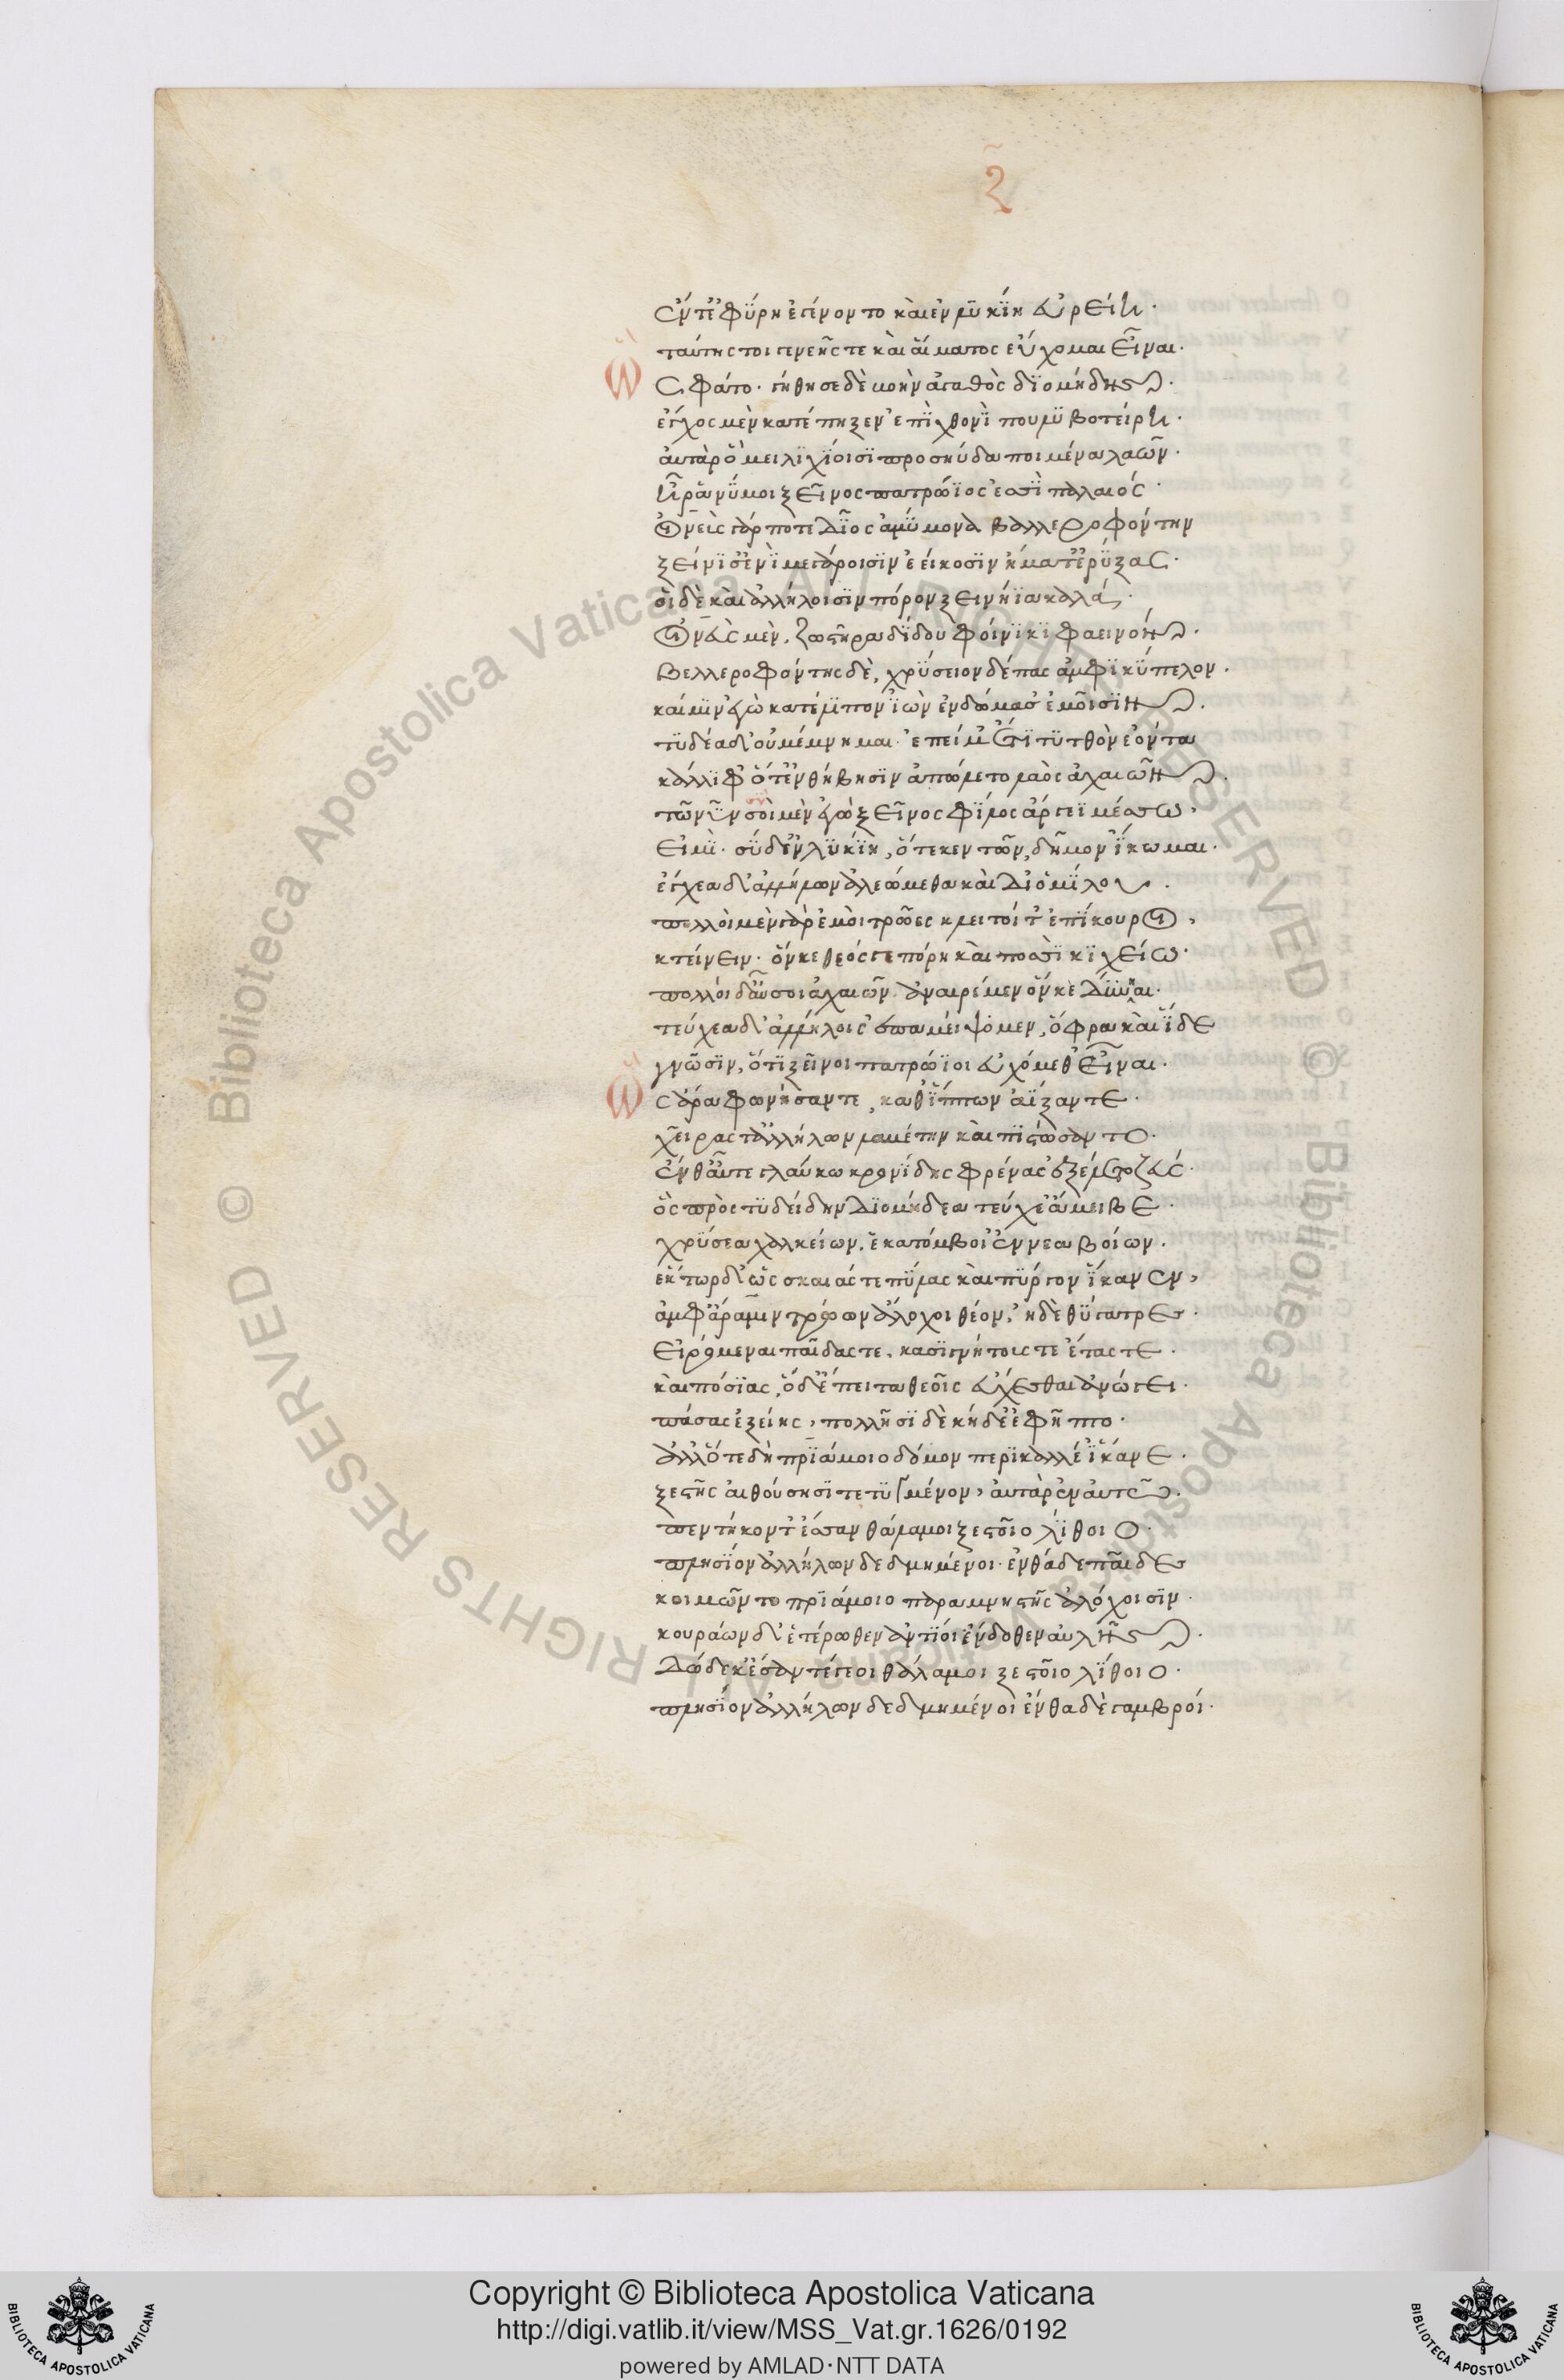 ζ̃
ἔν τ' ἐφύρῃ ἐγένοντο καὶ ἐν λυκίῃ εὐρείῃ.
ταύτης τοι γενεῆς τε καὶ αἵματος εὔχομαι εἶναι.
ὣς φάτο. γήθησε δὲ βοὴν ἀγαθὸς διομήδης.
ἔγχος μὲν κατέπηξεν ἐπὶ χθονὶ πουλυβοτείρῃ.
αὐτὰρ ὃ μειλιχίοισι προσηύδα ποιμένα λαῶν.
ἦ ῥά νύ μοι ξεῖνος πατρώϊός ἐσσι παλαιός.
οἰνεὺς γάρ ποτε δῖος ἀμύμονα βελλεροφόντην
ξείνισ' ἐνὶ μεγάροισιν ἐείκοσιν ἤματ' ἐρύξας.
οἱ δὲ καὶ ἀλλήλοισιν πόρον ξεινήϊα καλά.
οἰνεὺς μὲν, ζωστῆρα δίδου φοίνικι φαεινόν.
βελλεροφόντης δὲ, χρύσειον δέπας ἀμφικύπελον.
καί μιν ἐγὼ κατέλιπον ἰὼν ἐν δώμασ' ἐμοῖσιν.
τυδέα δ' οὐ μέμνημαι. ἐπεί μ' ἔτι τυτθὸν ἐόντα
κάλλιφ' ὅτ' ἐν θήβησιν ἀπώλετο λαὸς ἀχαιῶν.
τῶ νῦν σοὶ μὲν ἐγὼ ξεῖνος φίλος ἄργεϊ μέσσω,
εἰμὶ. σὺ δ' ἐν λυκίῃ, ὅτε κεν τῶν, δῆμον ἵκωμαι.
ἔγχεα δ' ἀλλήλων ἀλεώμεθα καὶ δι' ὁμίλου.
πολλοὶ μὲν γὰρ ἐμοὶ τρῶες κλειτοί τ' ἐπίκουροι,
κτείνειν. ὅν κε θεός γε πόρῃ καὶ ποσσὶ κιχείω.
πολλοὶ δ' αὖ σοι ἀχαιῶν ἐναιρέμεν ὅν κε δύνηαι.
τεύχεα δ' ἀλλήλοις ἐπαμείψομεν, ὄφρα καὶ οἵδε
γνῶσιν, ὅτι ξεῖνοι πατρώϊοι εὐχόμεθ' εἶναι.
ὣς ἄρα φωνήσαντε, καθ' ἵππων ἀΐξαντε.
χεῖρας τ' ἀλλήλων λαβέτην καὶ πιστώσαντο.
ἔνθ' αὖτε γλαύκω κρονίδης φρένας ἐξέλετο ζεύς.
ὃς πρὸς τυδείδην διομήδεα τεύχε' ἄμειβε.
χρύσεα χαλκείων. ἑκατόμβοι' ἐννεαβοίων.
ἕκτωρ δ' ὡς σκαιάς τε πύλας καὶ πύργον ἵκανεν,
ἀμφ' ἄρα μιν τρώων ἄλοχοι θέον, ἠδὲ θύγατρες.
εἰρόμεναι παῖδάς τε, κασιγνήτους τε ἔτας τε.
καὶ πόσιας, ὃ δ' ἔπειτα θεοῖς εὔχεσθαι ἀνώγει.
πάσας ἑξείης, πολλῆσι δὲ κήδε' ἐφῆπτο.
ἀλλ' ὅτε δὴ πριάμοιο δόμον περικαλλέ' ἵκανε.
ξεστῆς αἰθούσησι τετυγμένον, αὐτὰρ ἐν αὐτῶ.
πεντήκοντ' ἔσαν θάλαμοι ξεστοῖο λίθοιο.
πλησίον ἀλλήλων δεδμημένοι. ἔνθάδε παῖδες
κοιμῶντο πριάμοιο παρὰ μνηστῆς ἀλόχοισιν.
κουράων δ' ἑτέρωθεν ἀντίοι ἔνδοθεν αὐλῆς.
δώδεκ' ἔσαν τέγεοι θάλαμοι ξεστοῖο λίθοιο.
πλησίον ἀλλήλων δεδμημένοι ἔνθα δὲ γαμβροί.
Copyright © Biblioteca Apostolica Vaticana
http://digi.vatlib.it/view/MSS_Vat.gr.1626/0192
powered by AMLAD·NTT DATA